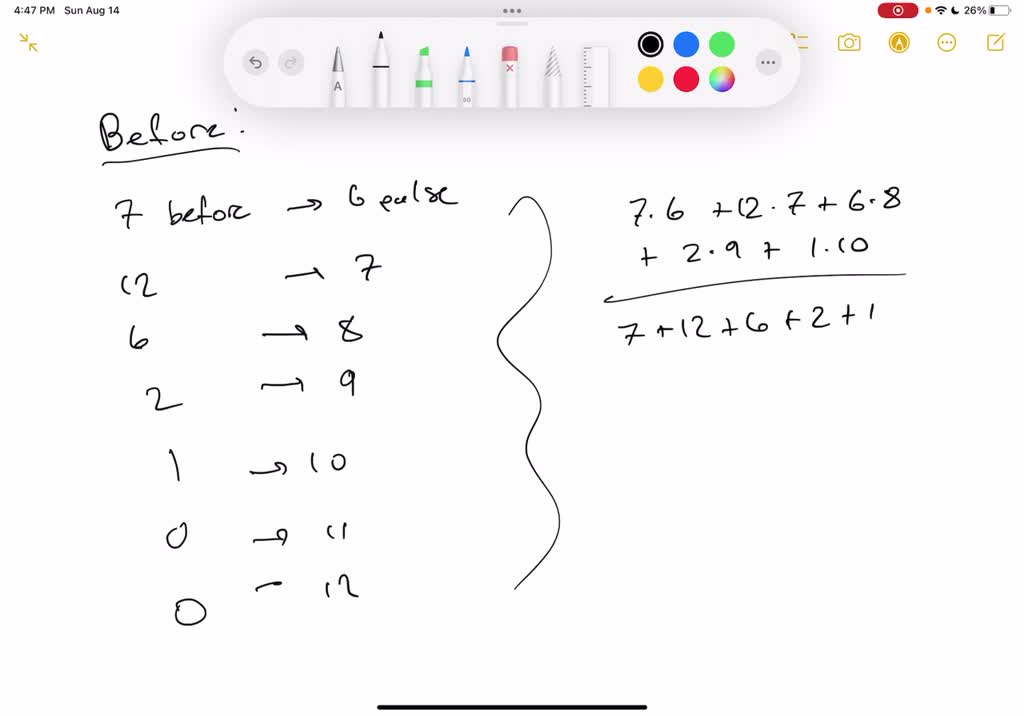 4:47 PM Sun Aug 14
26%
A
50
Before:
7 before → 6 pulse
12 → 7
6 → 8
2 → 9
1 → 10
0 → 11
0 - 12
7.6 + 12.7 + 6.8
+ 2.9 + 1.10
7 + 12 + 6 + 2 + 1